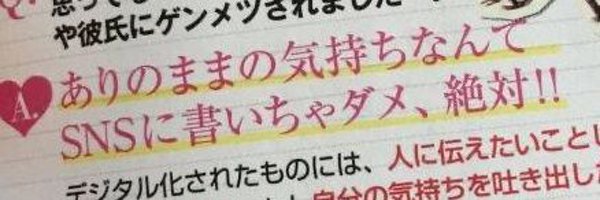 や彼氏にゲンメツされました
A. ありのままの気持ちなんて
SNSに書いちゃダメ、絶対!!
デジタル化されたものには、人に伝えたいことし
自分の気持ちを吐き出した